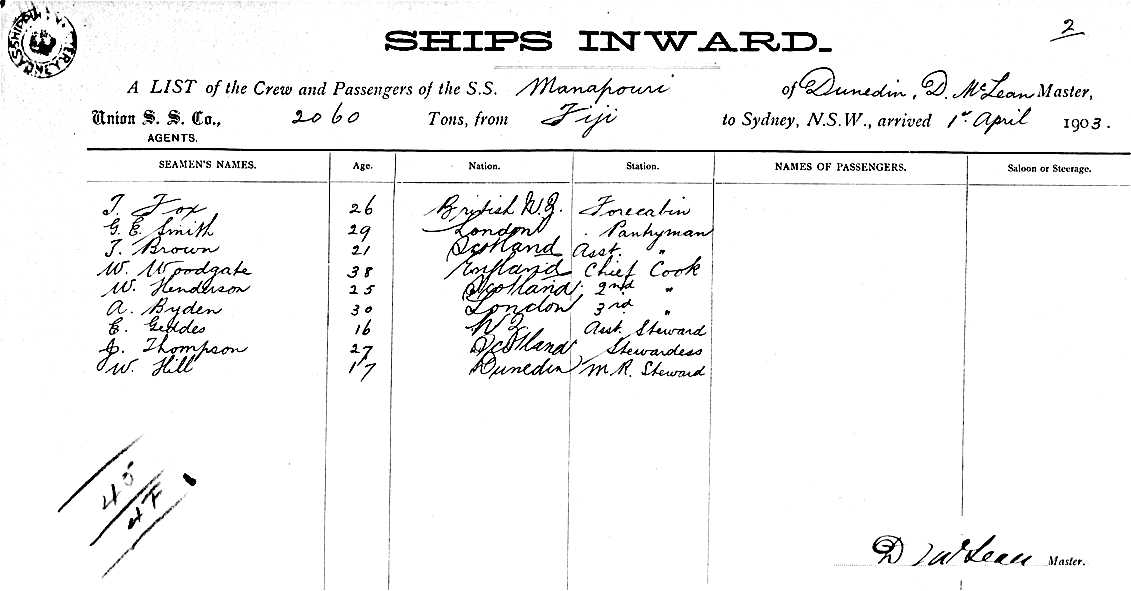 2
SHIPS INWARD.
A LIST of the Crew and Passengers of the S.S. Manapouri of Dunedin, D. McLean Master,
Union S. S. Co., 2060 Tons, from Fiji to Sydney, N.S.W., arrived 1st April 1903.
AGENTS.
SEAMEN'S NAMES. Age. Nation. Station. NAMES OF PASSENGERS. Saloon or Steerage.
T. Fox 26 British N.Z. Forecabin
G. E. Smith 29 London " Pantryman
T. Brown 21 Scotland Asst. "
W. Woodgate 38 England Chief Cook
W. Henderson 25 Scotland 2nd "
A. Byden 30 London 3rd "
E. Geddes 16 N Z Asst. Steward
J. Thompson 27 Scotland Stewardess
W. Hill 17 Dunedin M. R. Steward
45
D McLean Master.